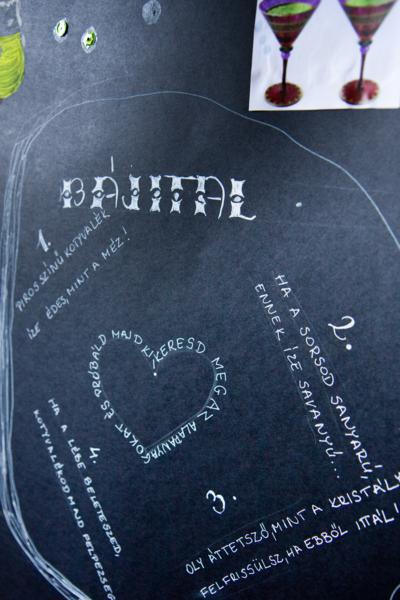 BÁJITAL
1.
PIROS SZÍNŰ KOTYVALÉK
ÍZE ÉDES, MINT A MÉZ!
2.
HA A SORSOD SANYARÚ,
ENNEK ÍZE SAVANYÚ...
KERESD MEG AZ ALAPANYAGOKAT ÉS PRÓBÁLD MAJD KI!
3.
OLY ÁTTETSZŐ, MINT A KRISTÁLY
FELFRISSÜLSZ, HA EBBŐL ITTÁL!
4.
HA A LÉBE BELETESZED,
KOTYVALÉKOD MAJD